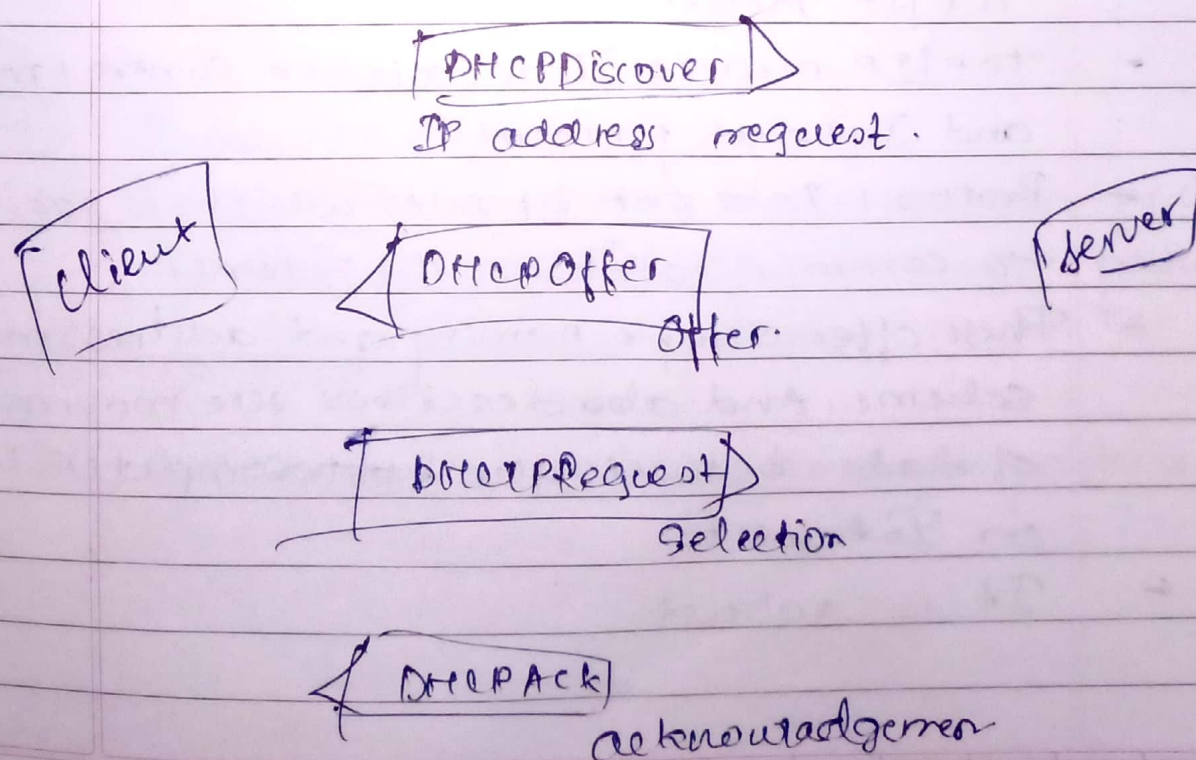 DHCPDiscover
IP address request.
Client
Server
DHCPOffer
Offer.
DHCPRequest
Selection
DHCPACK
acknowradgemen